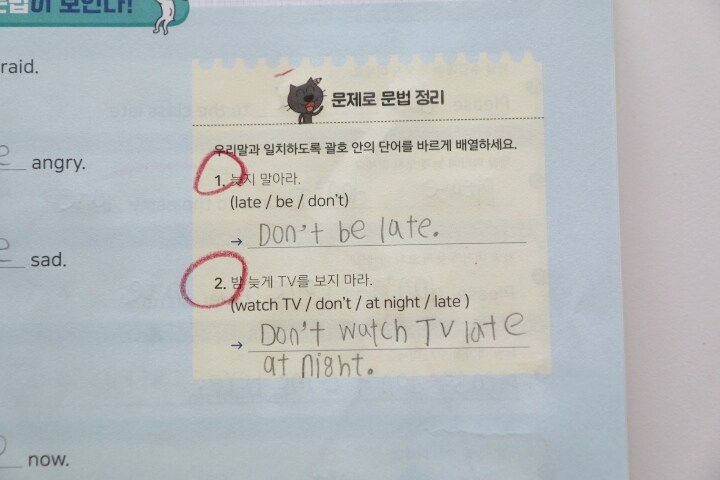 법이 보인다!
raid.
문제로 문법 정리
우리말과 일치하도록 괄호 안의 단어를 바르게 배열하세요.
angry.
1. 늦지 말아라.
(late / be / don't)
→ Don't be late.
sad.
2. 밤 늦게 TV를 보지 마라.
(watch TV / don't / at night / late )
→ Don't watch TV late
at night.
now.